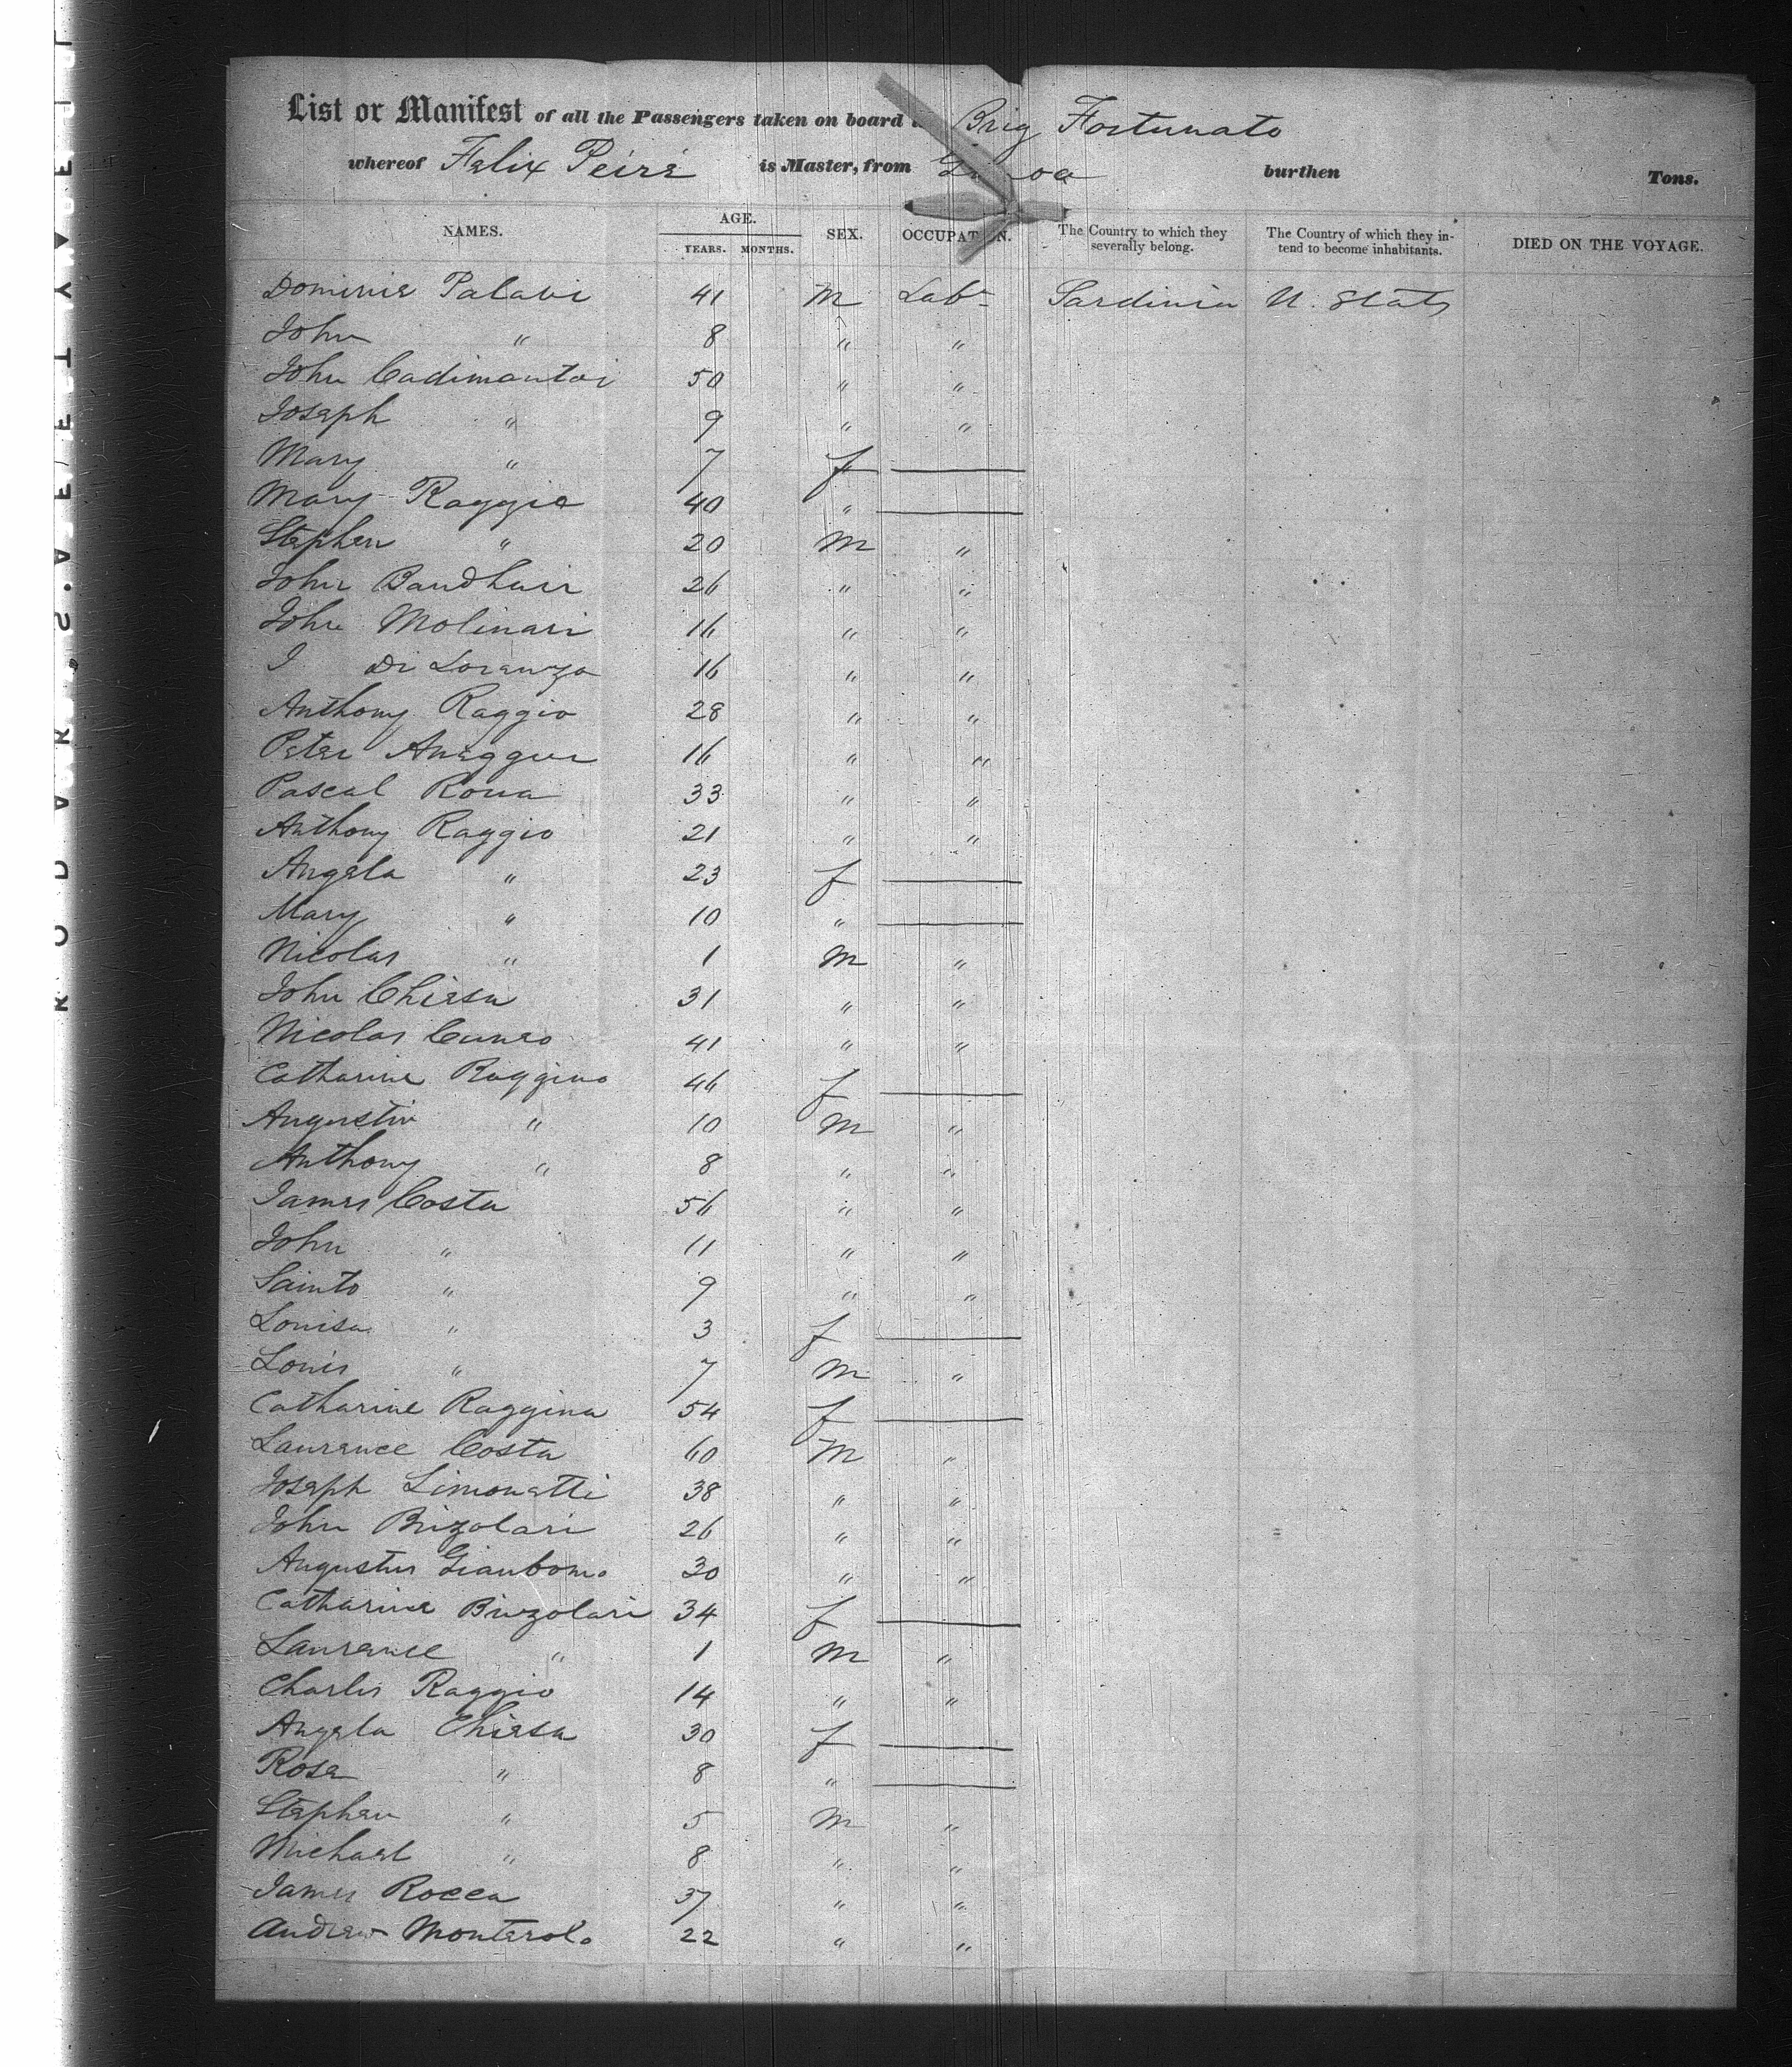 List or Manifest of all the Passengers taken on board Brig Fortunato
whereof Felix Peirè is Master, from Genoa burthen Tons.
NAMES. AGE. YEARS. MONTHS. SEX. OCCUPATION. The Country to which they severally belong. The Country of which they intend to become inhabitants. DIED ON THE VOYAGE.
Dominie Palavi 41 M Labr Sardinia U. Stats
John " 8 " "
John Cadimantoi 50 " "
Joseph " 9 " "
Mary " 7 f —
Mary Raggie 40 " —
Stephen " 20 M "
John 26 " "
John Molinari 16 " "
J Di Lorenzo 16 " "
Anthony Raggio 28 " "
Peter 16 " "
Pascal Rona 33 " "
Anthony Raggio 21 " "
Angela " 23 f —
Mary " 10 " —
Nicolas " 1 M "
John Chiesa 31 " "
Nicolas Cuneo 41 " "
Catharine Raggino 46 f —
Augustin " 10 M "
Anthony " 8 " "
James Costa 56 " "
John " 11 " "
Sainto " 9 " "
Louisa " 3 f —
Louis " 7 M "
Catharine Raggina 54 f —
Laurance Costa 60 M "
Joseph Limonetti 38 " "
John Brizolari 26 " "
Augustus Gianbono 30 " "
Catharine Brizolari 34 f —
Laurance " 1 M "
Charles Raggio 14 " "
Angela Chiesa 30 f —
Rosa " 8 " —
Stephen " 5 M "
Michael " 8 " "
James Rocca 37 " "
Andrew Monterolo 22 " "